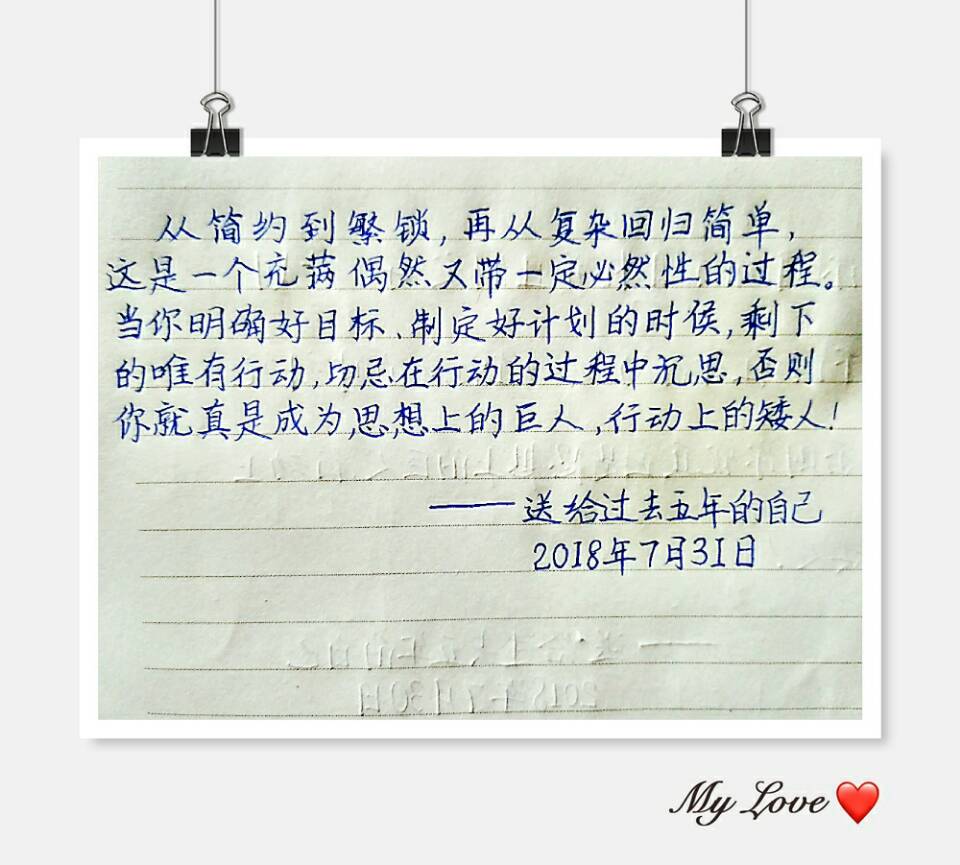 从简约到繁锁,再从复杂回归简单,
这是一个充满偶然又带一定必然性的过程。
当你明确好目标、制定好计划的时候,剩下
的唯有行动,切忌在行动的过程中沉思,否则
你就真是成为思想上的巨人,行动上的矮人!
——送给过去五年的自己
2018年7月31日
My Love